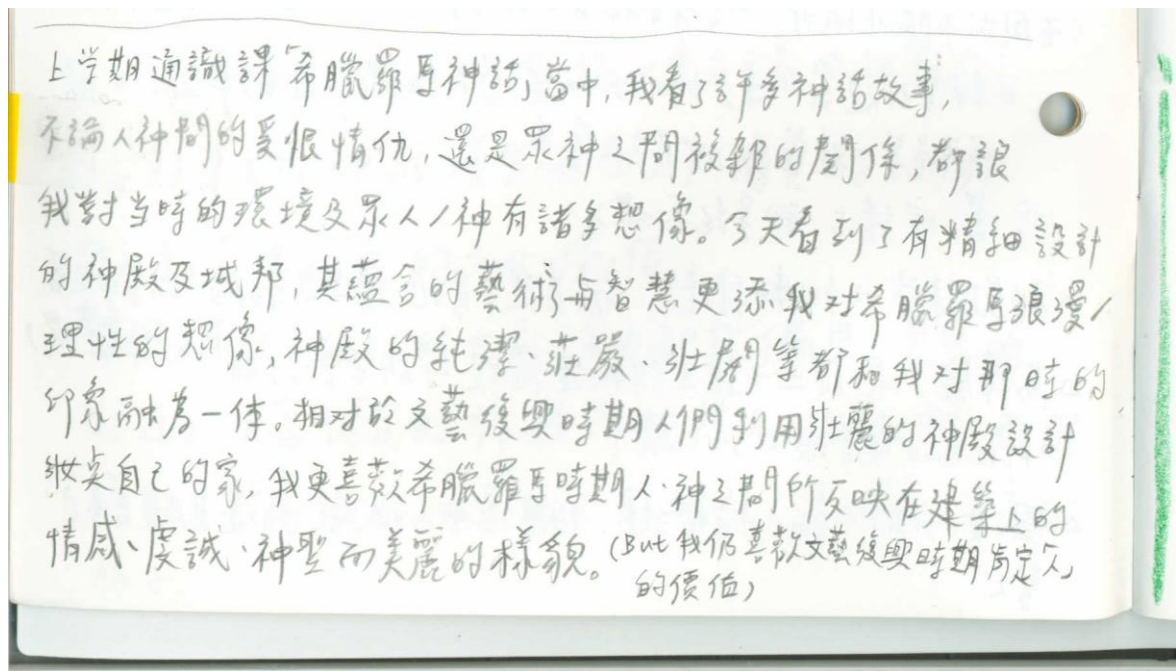 上学期通識課「希臘羅馬神話」當中，我看了許多神話故事，
不論人神間的愛恨情仇，還是眾神之間複雜的關係，都讓
我對当時的環境及眾人/神有諸多想像。今天看到了有精細設計
的神殿及城邦，其蘊含的藝術与智慧更添我对希臘羅馬浪漫/
理性的想像，神殿的純潔、莊嚴、壯闊等都和我对那時的
印象融為一体。相对於文藝復興時期人們利用壯麗的神殿設計
妝点自己的家，我更喜歡希臘羅馬時期人、神之間所反映在建築上的
情感、虔誠、神聖而美麗的樣貌。(But 我仍喜歡文藝復興時期肯定「人」
的價值)